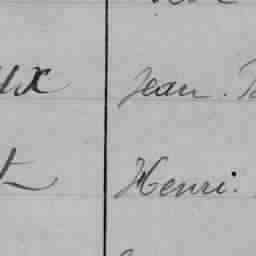 ux Jean.
t Henri.